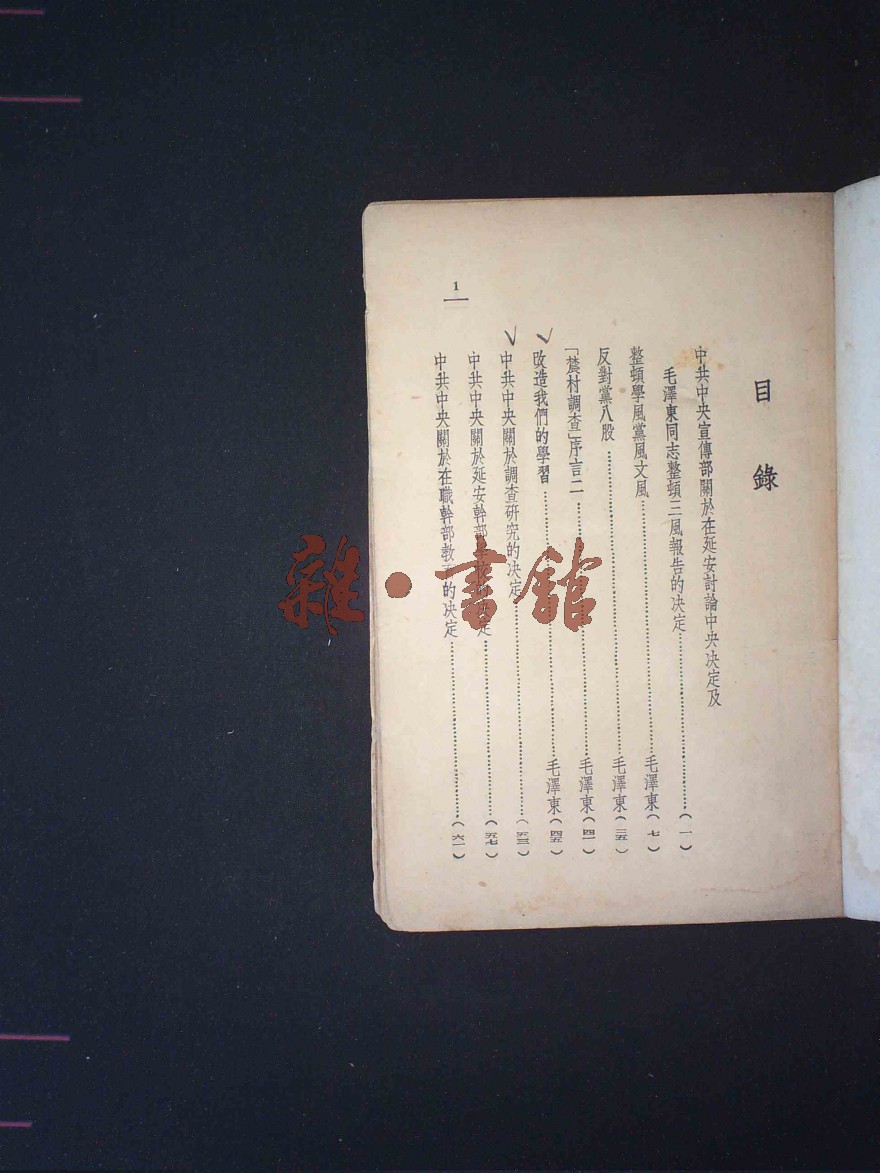 目錄
中共中央宣傳部關於在延安討論中央决定及
毛澤東同志整頓三風報告的决定……(一)
整頓學風黨風文風……毛澤東(七)
反對黨八股……毛澤東(二五)
「農村調查」序言二……毛澤東(四一)
改造我們的學習……毛澤東(四五)
中共中央關於調查研究的决定……(五三)
中共中央關於延安幹部學校的决定……(五七)
中共中央關於在職幹部教育的决定……(六一)
1
雜·書館